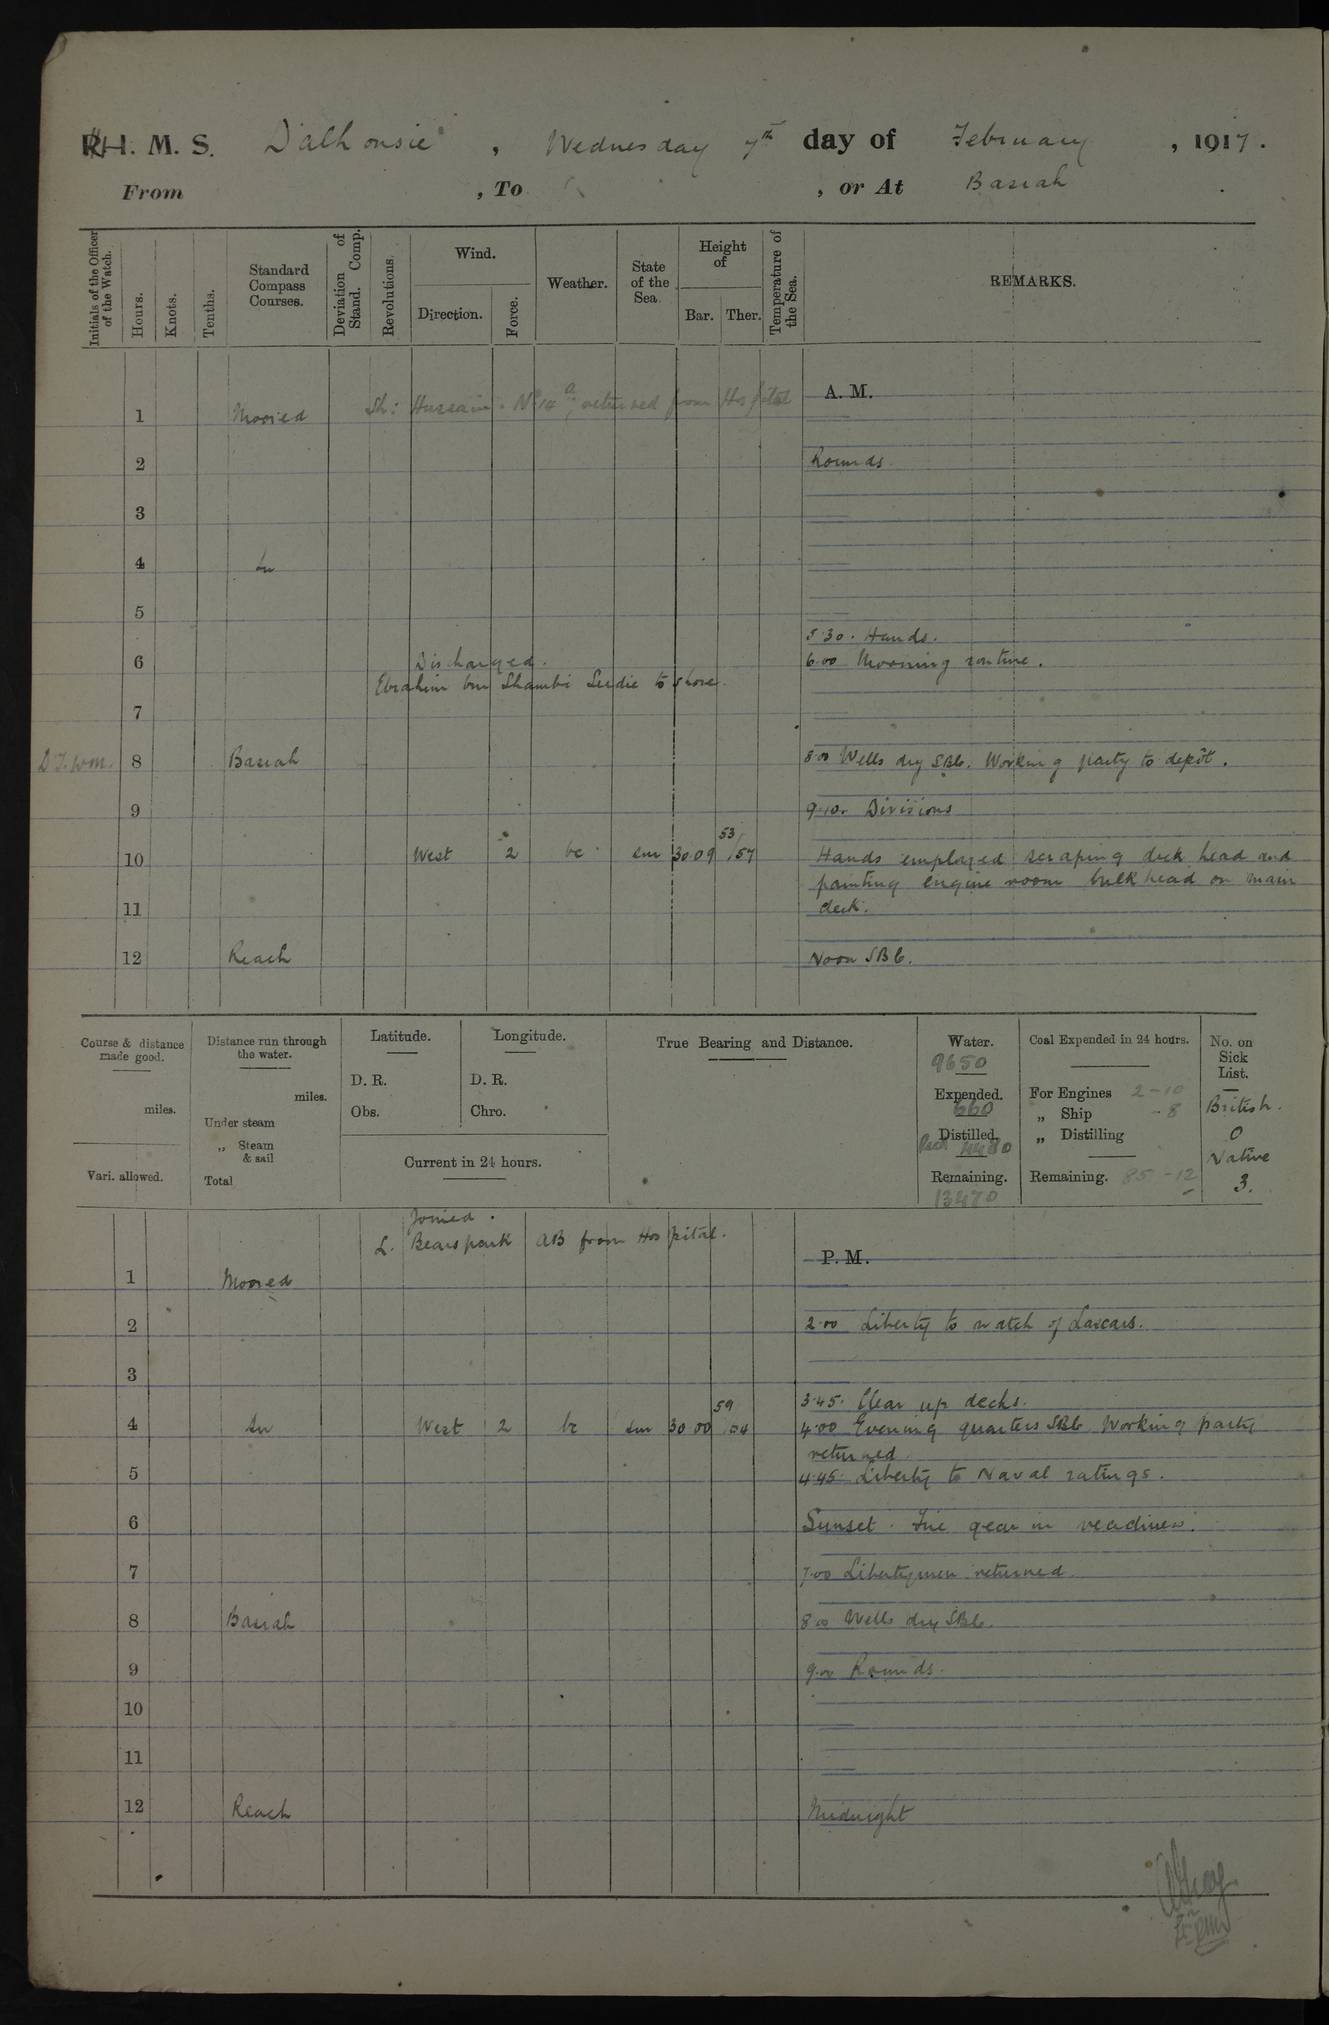 H. M. S. Dalhousie, Wednesday 7th day of February, 1917.
From , To , or At Basrah
Initials of the Officer of the Watch.
Hours.
Knots.
Tenths.
Standard Compass Courses.
Deviation of Stand. Comp.
Revolutions.
Wind.
Direction.
Force.
Weather.
State of the Sea.
Height of
Bar.
Ther.
Temperature of the Sea.
REMARKS.
A. M.
1 Moored Sh: Hussain. No 14 returned from Hospital
2 Rounds
3
4 in
5
5.30. Hands.
6 Discharged. 6.00 Morning routine.
Ebrahim bin Shambi Seedie to shore.
7
8 Basrah 8.00 Wells dry SBC. Working party to depôt.
9 9.10. Divisions
10 West 2 bc sm 30.09 53/57 Hands employed scraping deck head and
painting engine room bulkhead on main
11 deck.
12 Reach Noon SBC.
Course & distance made good.
miles.
Vari. allowed.
Distance run through the water.
miles.
Under steam
„ Steam & sail
Total
Latitude.
D. R.
Obs.
Longitude.
D. R.
Chro.
Current in 24 hours.
True Bearing and Distance.
Water.
9650
Expended.
660
Distilled.
Recd 4480
Remaining.
13470
Coal Expended in 24 hours.
For Engines 2-10
„ Ship -8
„ Distilling
Remaining. 85-12
No. on Sick List.
British.
0
Native
3.
Joined.
L. Bearspark AB from Hospital.
P. M.
1 Moored
2 2.00 Liberty to watch of Lascars.
3
3.45. Clear up decks.
4 in West 2 bc sm 30.00 59/54 4.00 Evening quarters SBC Working party
returned
5 4.45. Liberty to Naval ratings.
6 Sunset. Fire gear in readiness.
7 7.00 Libertymen returned
8 Basrah 8.00 Wells dry SBC.
9 9.00 Rounds.
10
11
12 Reach Midnight